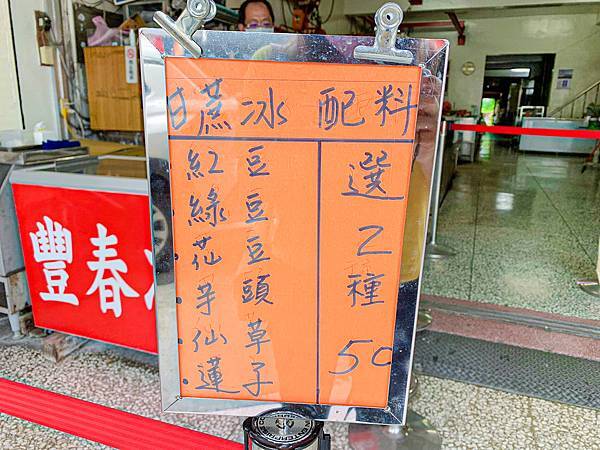 甘蔗冰 配料
紅豆
·綠豆
·花豆
·芋頭
·仙草
·蓮子
選2種50
豐春冰